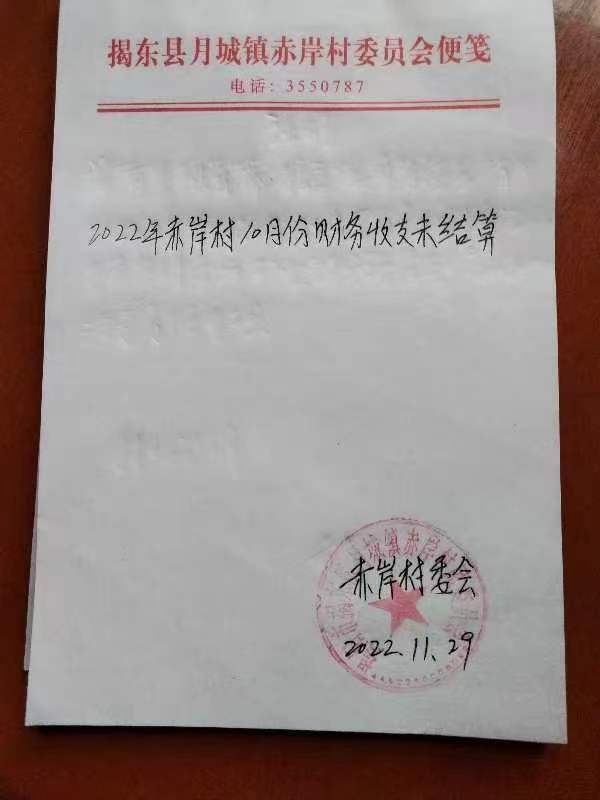 揭东县月城镇赤岸村委员会便笺
电话：3550787
2022年赤岸村10月份财务收支未结算
赤岸村委会
2022.11.29